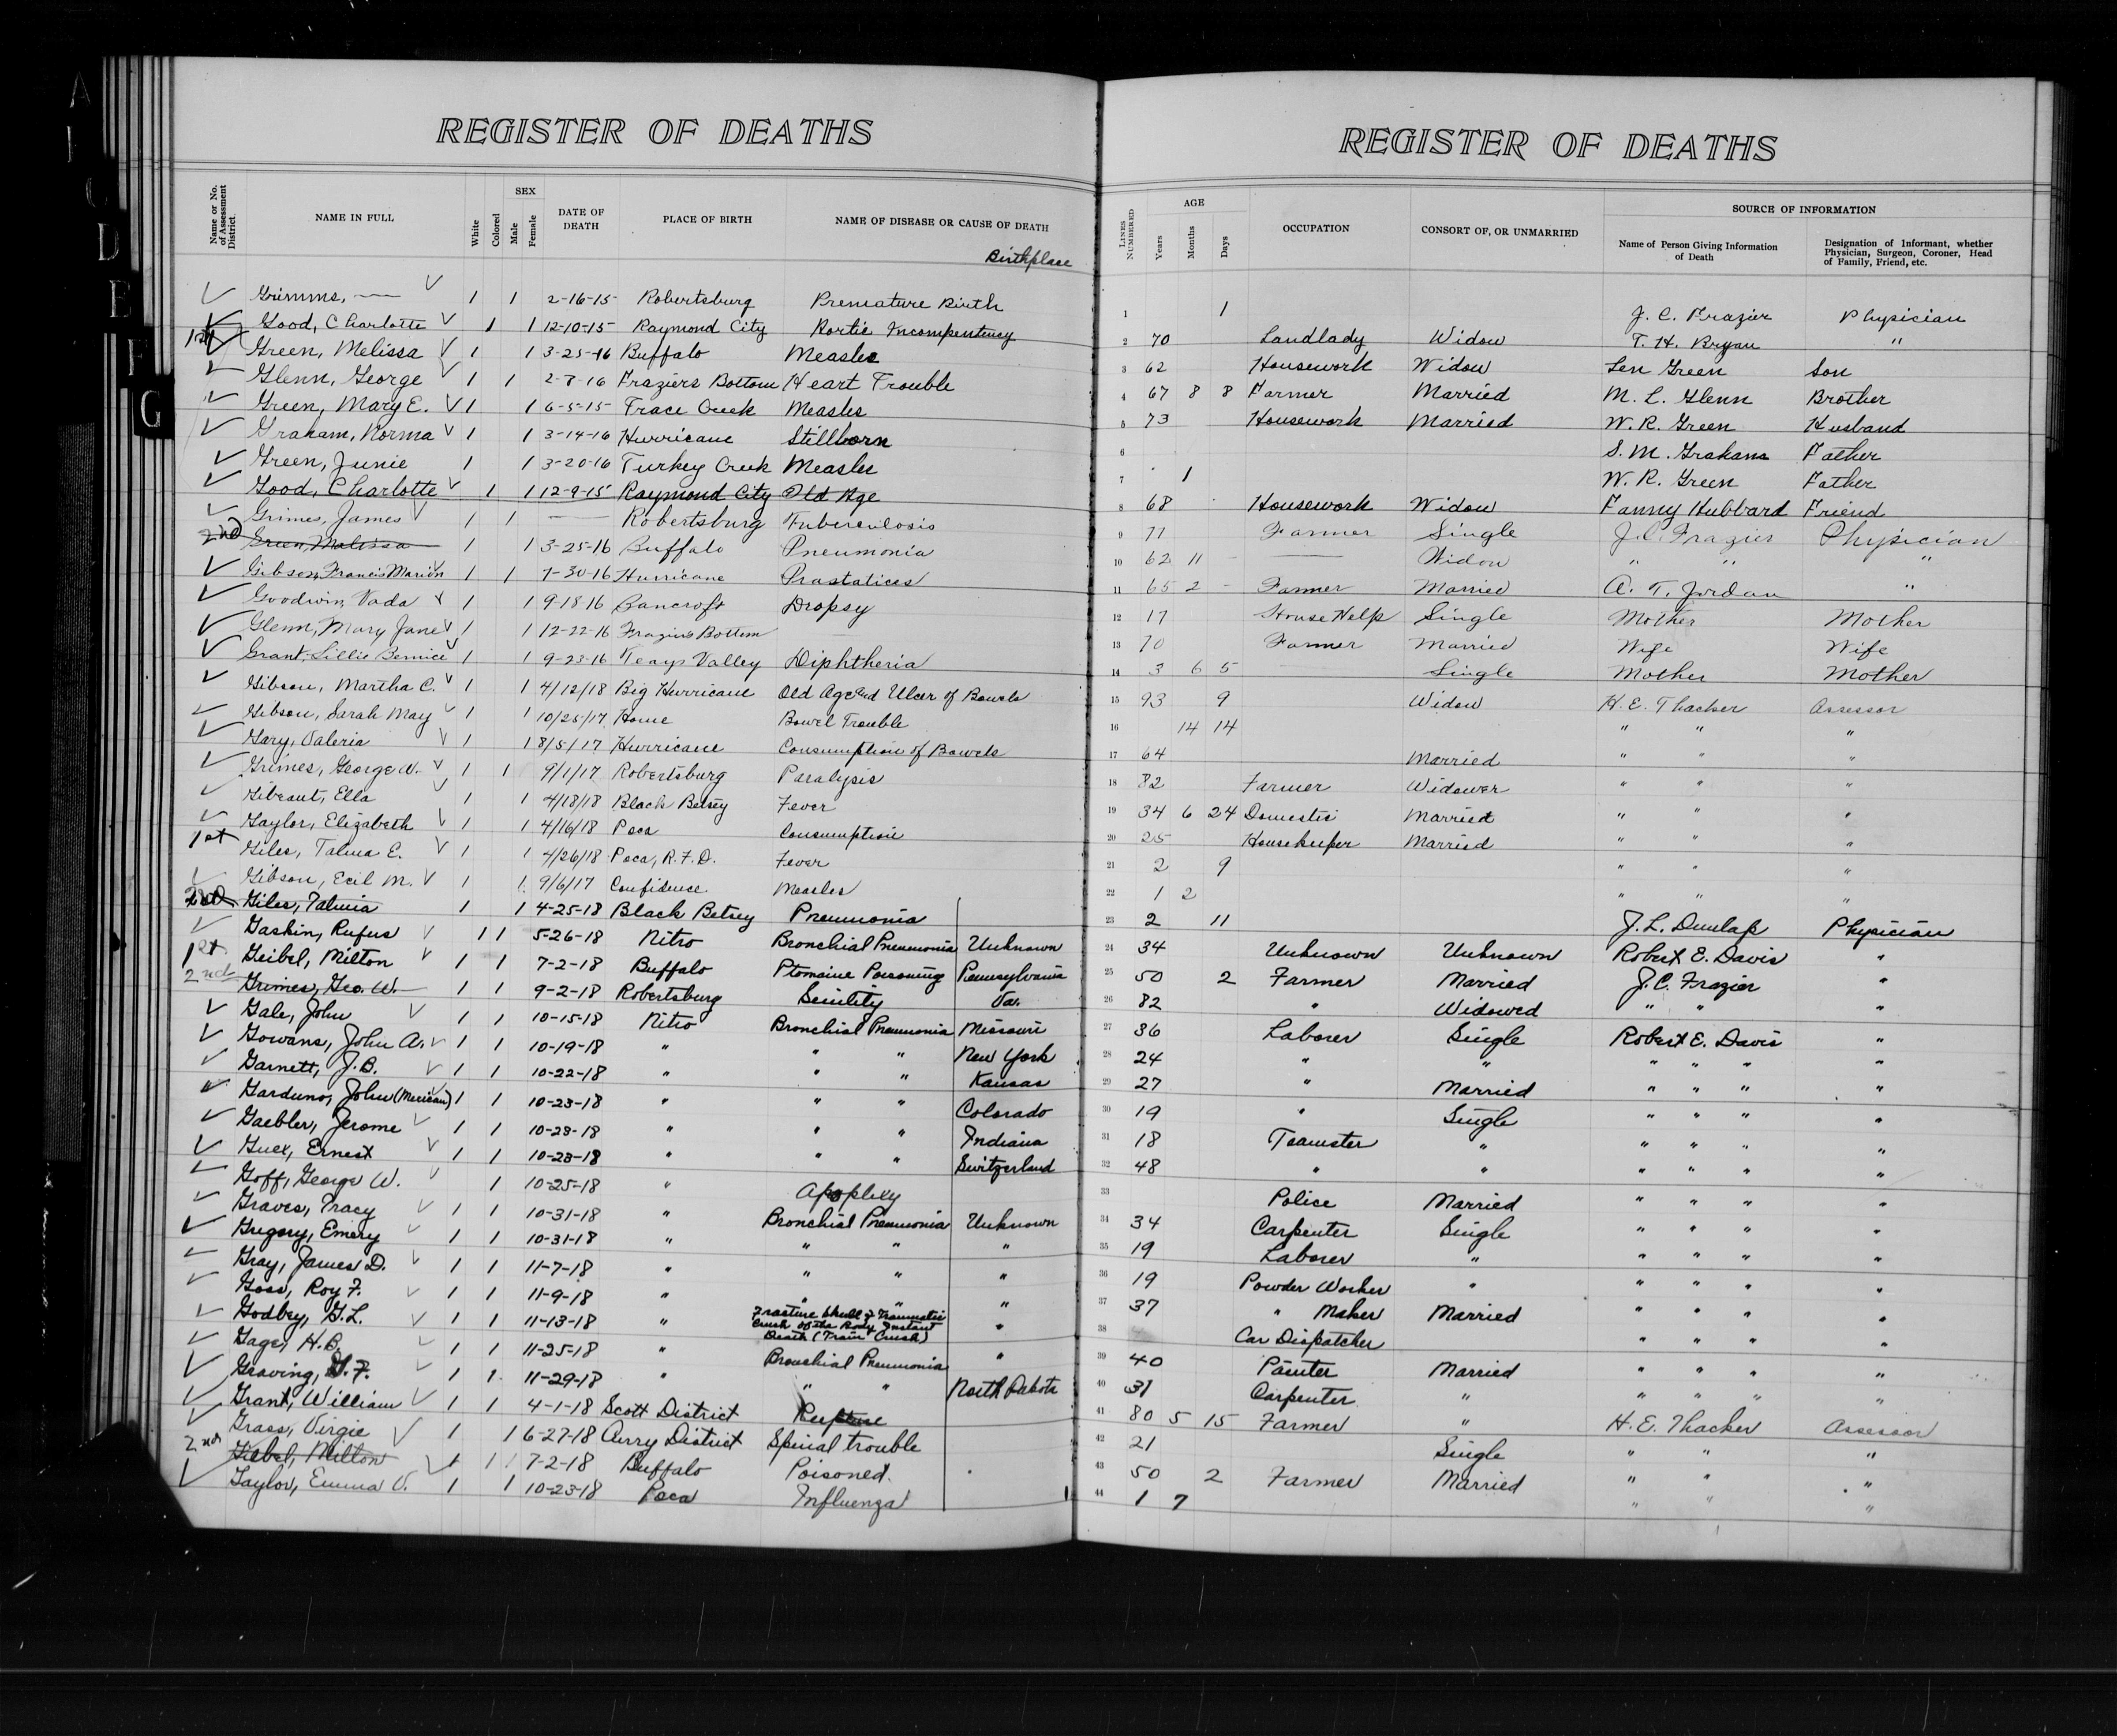 REGISTER OF DEATHS
Name or No. of Assessment District. NAME IN FULL White Colored SEX Male Female DATE OF DEATH PLACE OF BIRTH NAME OF DISEASE OR CAUSE OF DEATH
Birthplace
✓ Grimms, — ✓ 1 1 2-16-15 Robertsburg Premature Birth
Good, Charlotte ✓ 1 1 12-10-15 Raymond City Aortic Incompentency
1st Green, Melissa ✓ 1 1 3-25-16 Buffalo Measles
Glenn, George ✓ 1 1 2-7-16 Fraziers Bottom Heart Trouble
✓ Green, Mary E. ✓ 1 1 6-5-15 Trace Creek Measles
✓ Graham, Norma ✓ 1 1 3-14-16 Hurricane Stillborn
✓ Green, Junie 1 1 3-20-16 Turkey Creek Measles
✓ Good, Charlotte ✓ 1 1 12-9-15 Raymond City Old Age
✓ Grimes, James ✓ 1 1 — Robertsburg Tuberculosis
2nd Green, Malissa 1 1 3-25-16 Buffalo Pneumonia
✓ Gibson, Francis Marion 1 1 7-30-16 Hurricane Prostatices
✓ Goodwin, Vada ✓ 1 1 9-18-16 Bancroft Dropsy
✓ Glenn, Mary Jane ✓ 1 1 12-22-16 Fraziers Bottom —
✓ Grant, Lillie Bernice 1 1 9-23-16 Teays Valley Diphtheria
✓ Gibson, Martha C. ✓ 1 1 4/12/18 Big Hurricane Old Age and Ulcer of Bowels
✓ Gibson, Sarah May ✓ 1 1 10/25/17 Home Bowel Trouble
✓ Gary, Valeria ✓ 1 1 8/5/17 Hurricane Consumption of Bowels
✓ Grimes, George W. ✓ 1 1 9/1/17 Robertsburg Paralysis
✓ Gibeaut, Ella ✓ 1 1 4/18/18 Black Betsey Fever
✓ Gaylor, Elizabeth ✓ 1 1 4/16/18 Poca Consumption
1st Giles, Talma E. ✓ 1 1 4/26/18 Poca, R.F.D. Fever
✓ Gibson, Ecil M. ✓ 1 1 9/6/17 Confidence Measles
2nd Giles, Talmia 1 1 4-25-18 Black Betsey Pneumonia
✓ Gaskin, Rufus ✓ 1 1 5-26-18 Nitro Bronchial Pneumonia Unknown
1st Geibel, Milton ✓ 1 1 7-2-18 Buffalo Ptomaine Poisoning Pennsylvania
2nd Grimes, Geo. W. 1 1 9-2-18 Robertsburg Senility Va.
✓ Gale, John ✓ 1 1 10-15-18 Nitro Bronchial Pneumonia Missouri
✓ Gowans, John A. ✓ 1 1 10-19-18 " " " New York
✓ Garnett, J.B. ✓ 1 1 10-22-18 " " " Kansas
✓ Garduno, John (Mexican) 1 1 10-23-18 " " " Colorado
✓ Gaebler, Jerome ✓ 1 1 10-23-18 " " " Indiana
✓ Guex, Ernest ✓ 1 1 10-23-18 " " " Switzerland
✓ Goff, George W. ✓ 1 10-25-18 " Apoplexy
✓ Graves, Tracy ✓ 1 1 10-31-18 " Bronchial Pneumonia Unknown
✓ Gregory, Emery ✓ 1 1 10-31-18 " " " "
✓ Gray, James D. ✓ 1 1 11-7-18 " " " "
✓ Goss, Roy F. ✓ 1 1 11-9-18 " " " "
✓ Godbey, G.L. ✓ 1 1 11-13-18 " Fracture Skull & Traumatic Crush of the Body, Instant Death (Train Crush) "
✓ Gage, H.B. ✓ 1 1 11-25-18 " Bronchial Pneumonia "
✓ Graving, G.F. ✓ 1 1 11-29-18 " " " North Dakota
✓ Grant, William ✓ 1 1 4-1-18 Scott District Rupture
✓ Grass, Virgie ✓ 1 1 6-27-18 Curry District Spinal trouble
2nd Giebel, Milton ✓ 1 1 7-2-18 Buffalo Poisoned.
✓ Gaylor, Emma V. 1 1 10-23-18 Poca Influenza
REGISTER OF DEATHS
LINES NUMBERED AGE Years Months Days OCCUPATION CONSORT OF, OR UNMARRIED SOURCE OF INFORMATION
Name of Person Giving Information of Death Designation of Informant, whether Physician, Surgeon, Coroner, Head of Family, Friend, etc.
1 1 J. C. Frazier Physician
2 70 Landlady Widow T. H. Bryan "
3 62 Housework Widow Len Green Son
4 67 8 8 Farmer Married M. L. Glenn Brother
5 73 Housework Married W. R. Green Husband
6 S. M. Graham Father
7 1 W. R. Green Father
8 68 Housework Widow Fanny Hubbard Friend
9 71 Farmer Single J. C. Frazier Physician
10 62 11 — Widow " " "
11 65 2 - Farmer Married A. T. Jordan "
12 17 House Help Single Mother Mother
13 70 Farmer Married Wife Wife
14 3 6 5 Single Mother Mother
15 93 9 Widow H. E. Thacker Assessor
16 14 14 " " "
17 64 Married " " "
18 82 Farmer Widower " " "
19 34 6 24 Domestic Married " " "
20 25 Housekeeper Married " " "
21 2 9 " " "
22 1 2 " " "
23 2 11 J. L. Dunlap Physician
24 34 Unknown Unknown Robert E. Davis "
25 50 2 Farmer Married J.C. Frazier "
26 82 " Widowed " " "
27 36 Laborer Single Robert E. Davis "
28 24 " " " " " "
29 27 " Married " " " "
30 19 " Single " " " "
31 18 Teamster " " " " "
32 48 " " " " " "
33 Police Married " " " "
34 34 Carpenter Single " " " "
35 19 Laborer " " " " "
36 19 Powder Worker " " " " "
37 37 " Maker Married " " " "
38 Car Dispatcher " " " "
39 40 Painter Married " " " "
40 31 Carpenter " " " " "
41 80 5 15 Farmer " H. E. Thacker Assessor
42 21 Single " " "
43 50 2 Farmer Married " " "
44 1 7 " " "
A
D
E
F
G